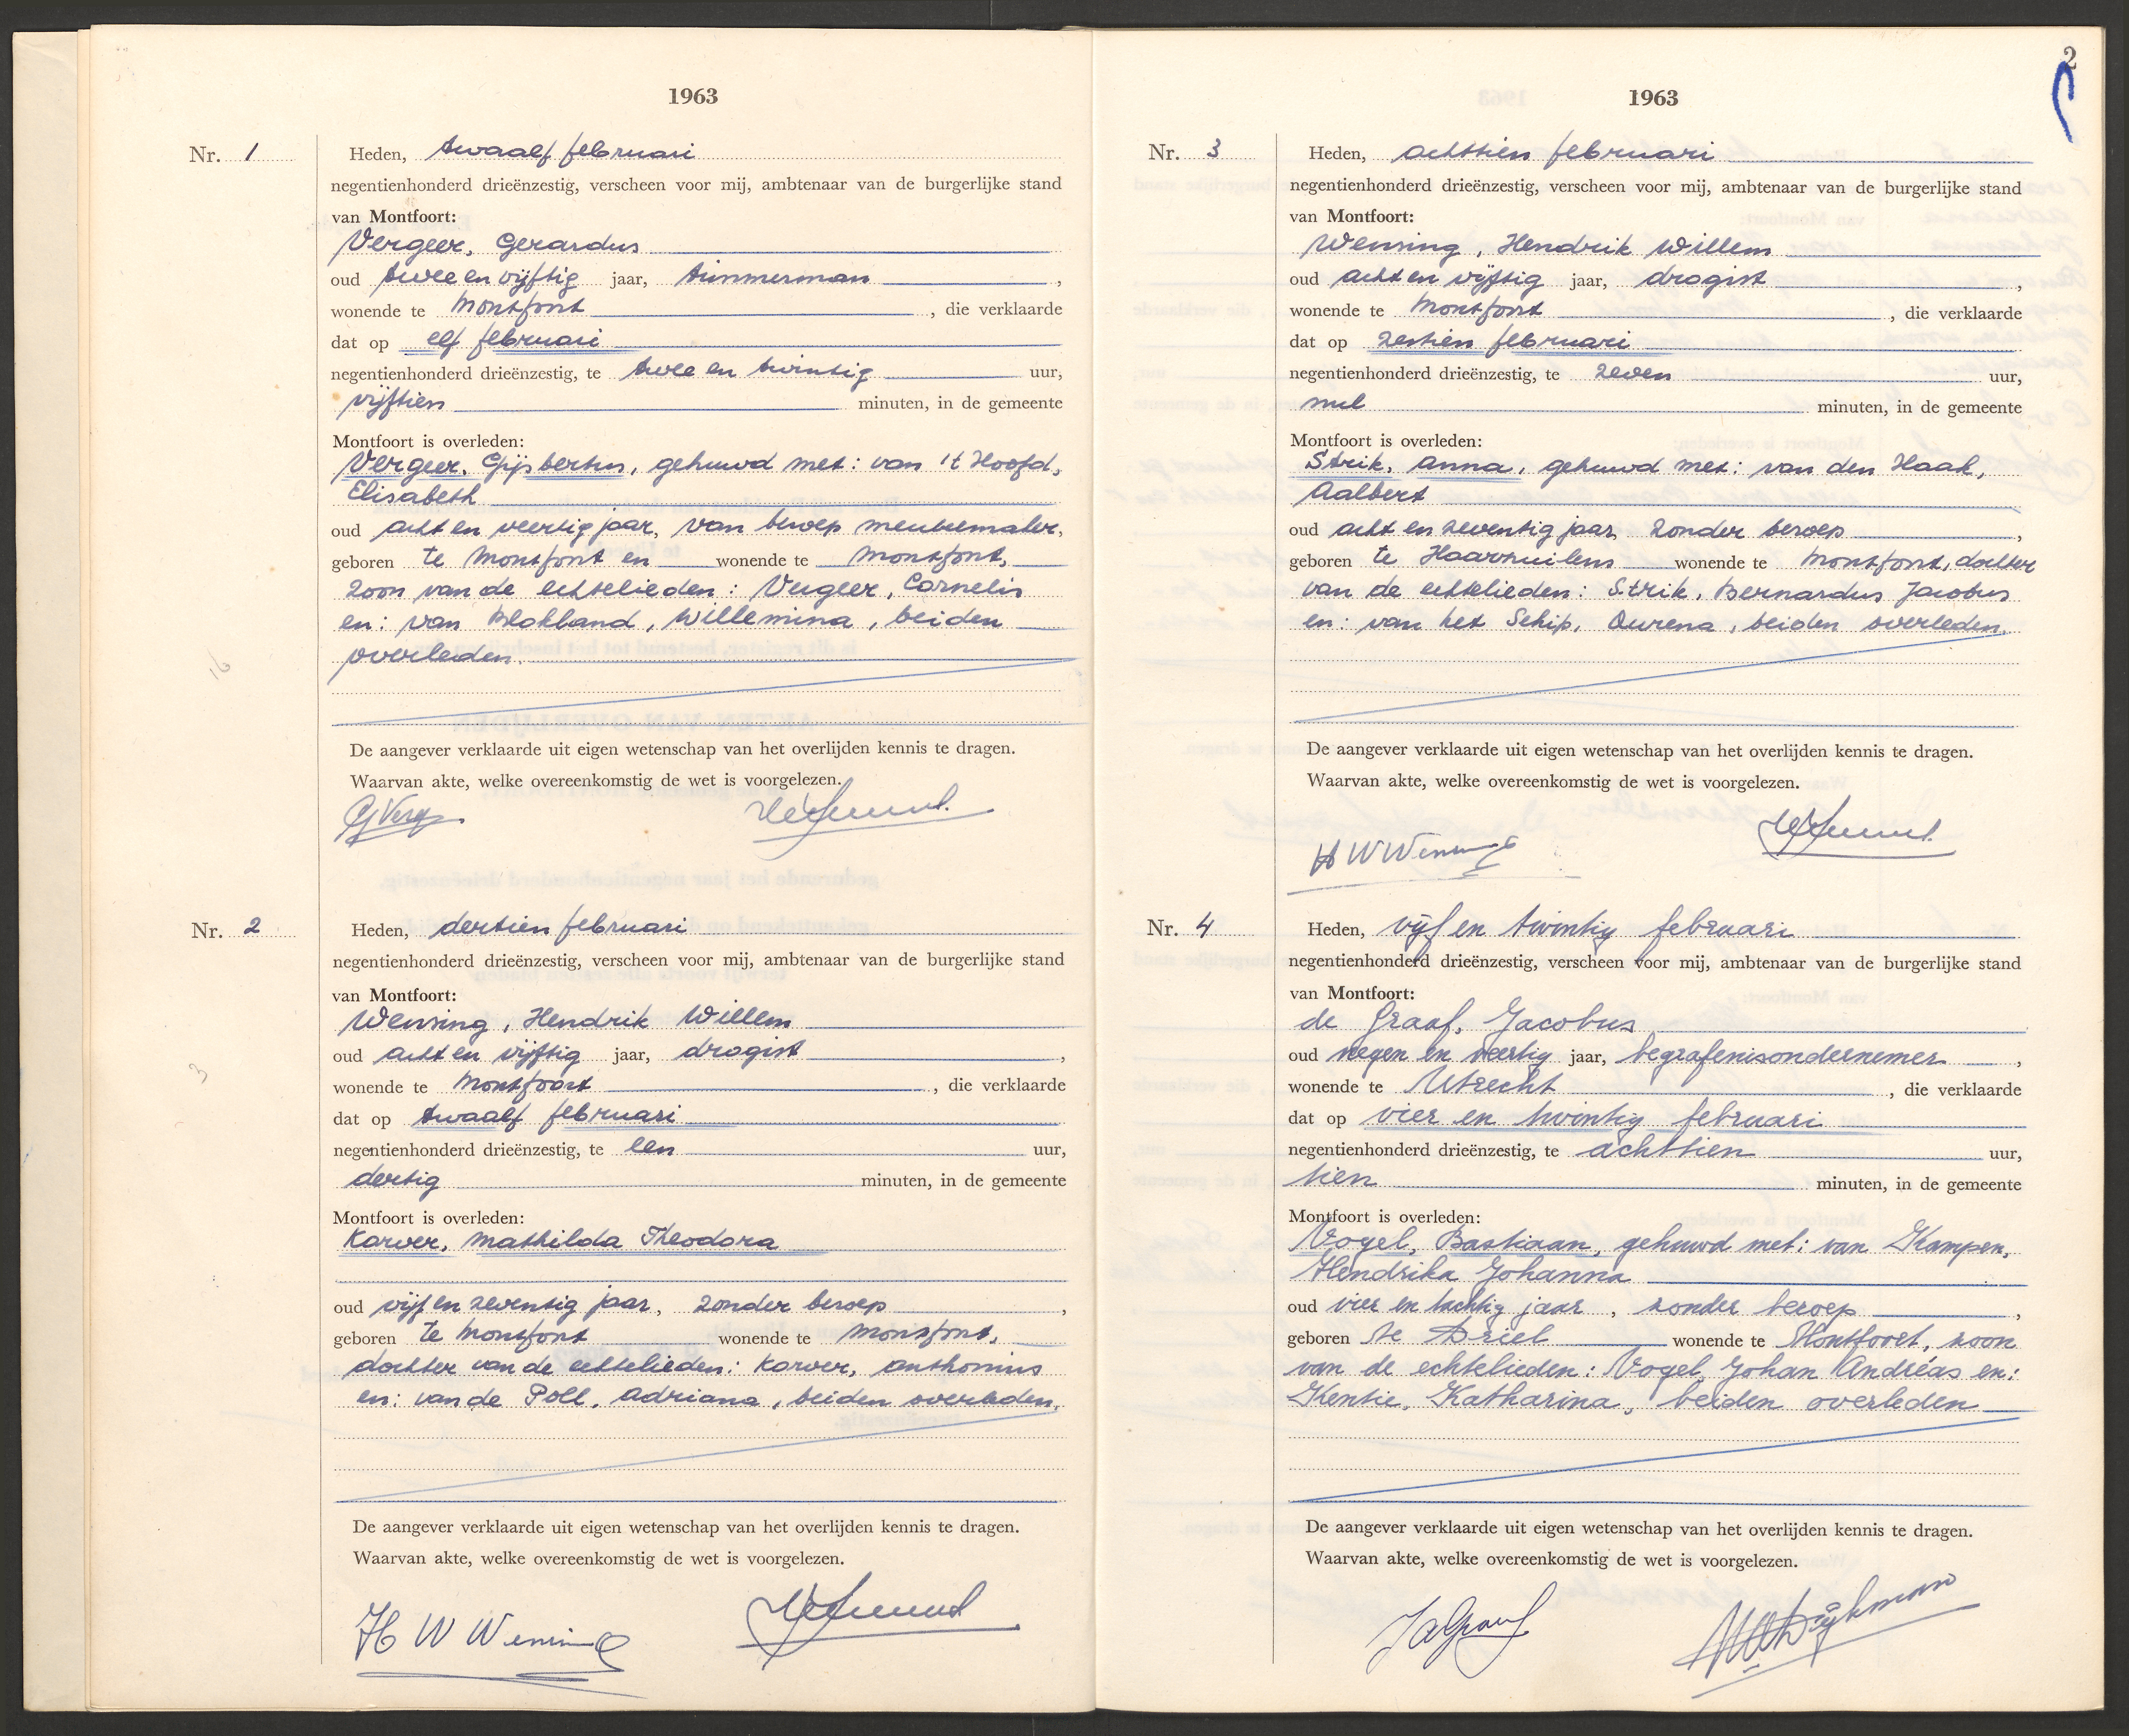 1963
Nr. 1
Heden, twaalf februari
negentienhonderd drieënzestig, verscheen voor mij, ambtenaar van de burgerlijke stand
van Montfoort:
Vergeer, Gerardus
oud twee en vijftig jaar, timmerman,
wonende te Montfoort, die verklaarde
dat op elf februari
negentienhonderd drieënzestig, te twee en twintig uur,
vijftien minuten, in de gemeente
Montfoort is overleden:
Vergeer, Gijsbertus, gehuwd met: van 't Hoofd,
Elisabeth
oud acht en veertig jaar, van beroep meubelmaker,
geboren te Montfoort en wonende te Montfoort,
zoon van de echtelieden: Vergeer, Cornelis
en: van Blokland, Willemina, beiden
overleden.
De aangever verklaarde uit eigen wetenschap van het overlijden kennis te dragen.
Waarvan akte, welke overeenkomstig de wet is voorgelezen.
GVerg
16
Nr. 2
Heden, dertien februari
negentienhonderd drieënzestig, verscheen voor mij, ambtenaar van de burgerlijke stand
van Montfoort:
Wensing, Hendrik Willem
oud acht en vijftig jaar, drogist,
wonende te Montfoort, die verklaarde
dat op twaalf februari
negentienhonderd drieënzestig, te een uur,
dertig minuten, in de gemeente
Montfoort is overleden:
Karver, Mathilda Theodora
oud vijf en zeventig jaar, zonder beroep,
geboren te Montfoort wonende te Montfoort,
dochter van de echtelieden: Karver, Anthonius
en: van de Poll, Adriana, beiden overleden.
De aangever verklaarde uit eigen wetenschap van het overlijden kennis te dragen.
Waarvan akte, welke overeenkomstig de wet is voorgelezen.
H W Wensing
3
2
1963
Nr. 3
Heden, achttien februari
negentienhonderd drieënzestig, verscheen voor mij, ambtenaar van de burgerlijke stand
van Montfoort:
Wensing, Hendrik Willem
oud acht en vijftig jaar, drogist,
wonende te Montfoort, die verklaarde
dat op zestien februari
negentienhonderd drieënzestig, te zeven uur,
nul minuten, in de gemeente
Montfoort is overleden:
Strik, Anna, gehuwd met: van den Haak,
Aalbert
oud acht en zeventig jaar zonder beroep,
geboren te Haarzuilens wonende te Montfoort, dochter
van de echtelieden: Strik, Bernardus Jacobus
en: van het Schip, Qurena, beiden overleden.
De aangever verklaarde uit eigen wetenschap van het overlijden kennis te dragen.
Waarvan akte, welke overeenkomstig de wet is voorgelezen.
H W Wensing
Nr. 4
Heden, vijf en twintig februari
negentienhonderd drieënzestig, verscheen voor mij, ambtenaar van de burgerlijke stand
van Montfoort:
de Graaf, Jacobus
oud negen en veertig jaar, begrafenisondernemer,
wonende te Utrecht, die verklaarde
dat op vier en twintig februari
negentienhonderd drieënzestig, te achttien uur,
tien minuten, in de gemeente
Montfoort is overleden:
Vogel, Bastiaan, gehuwd met: van Kampen,
Hendrika Johanna
oud vier en tachtig jaar, zonder beroep,
geboren te Driel wonende te Montfoort, zoon
van de echtelieden: Vogel, Johan Andréas en:
Kentie, Katharina, beiden overleden
De aangever verklaarde uit eigen wetenschap van het overlijden kennis te dragen.
Waarvan akte, welke overeenkomstig de wet is voorgelezen.
JdGraaf